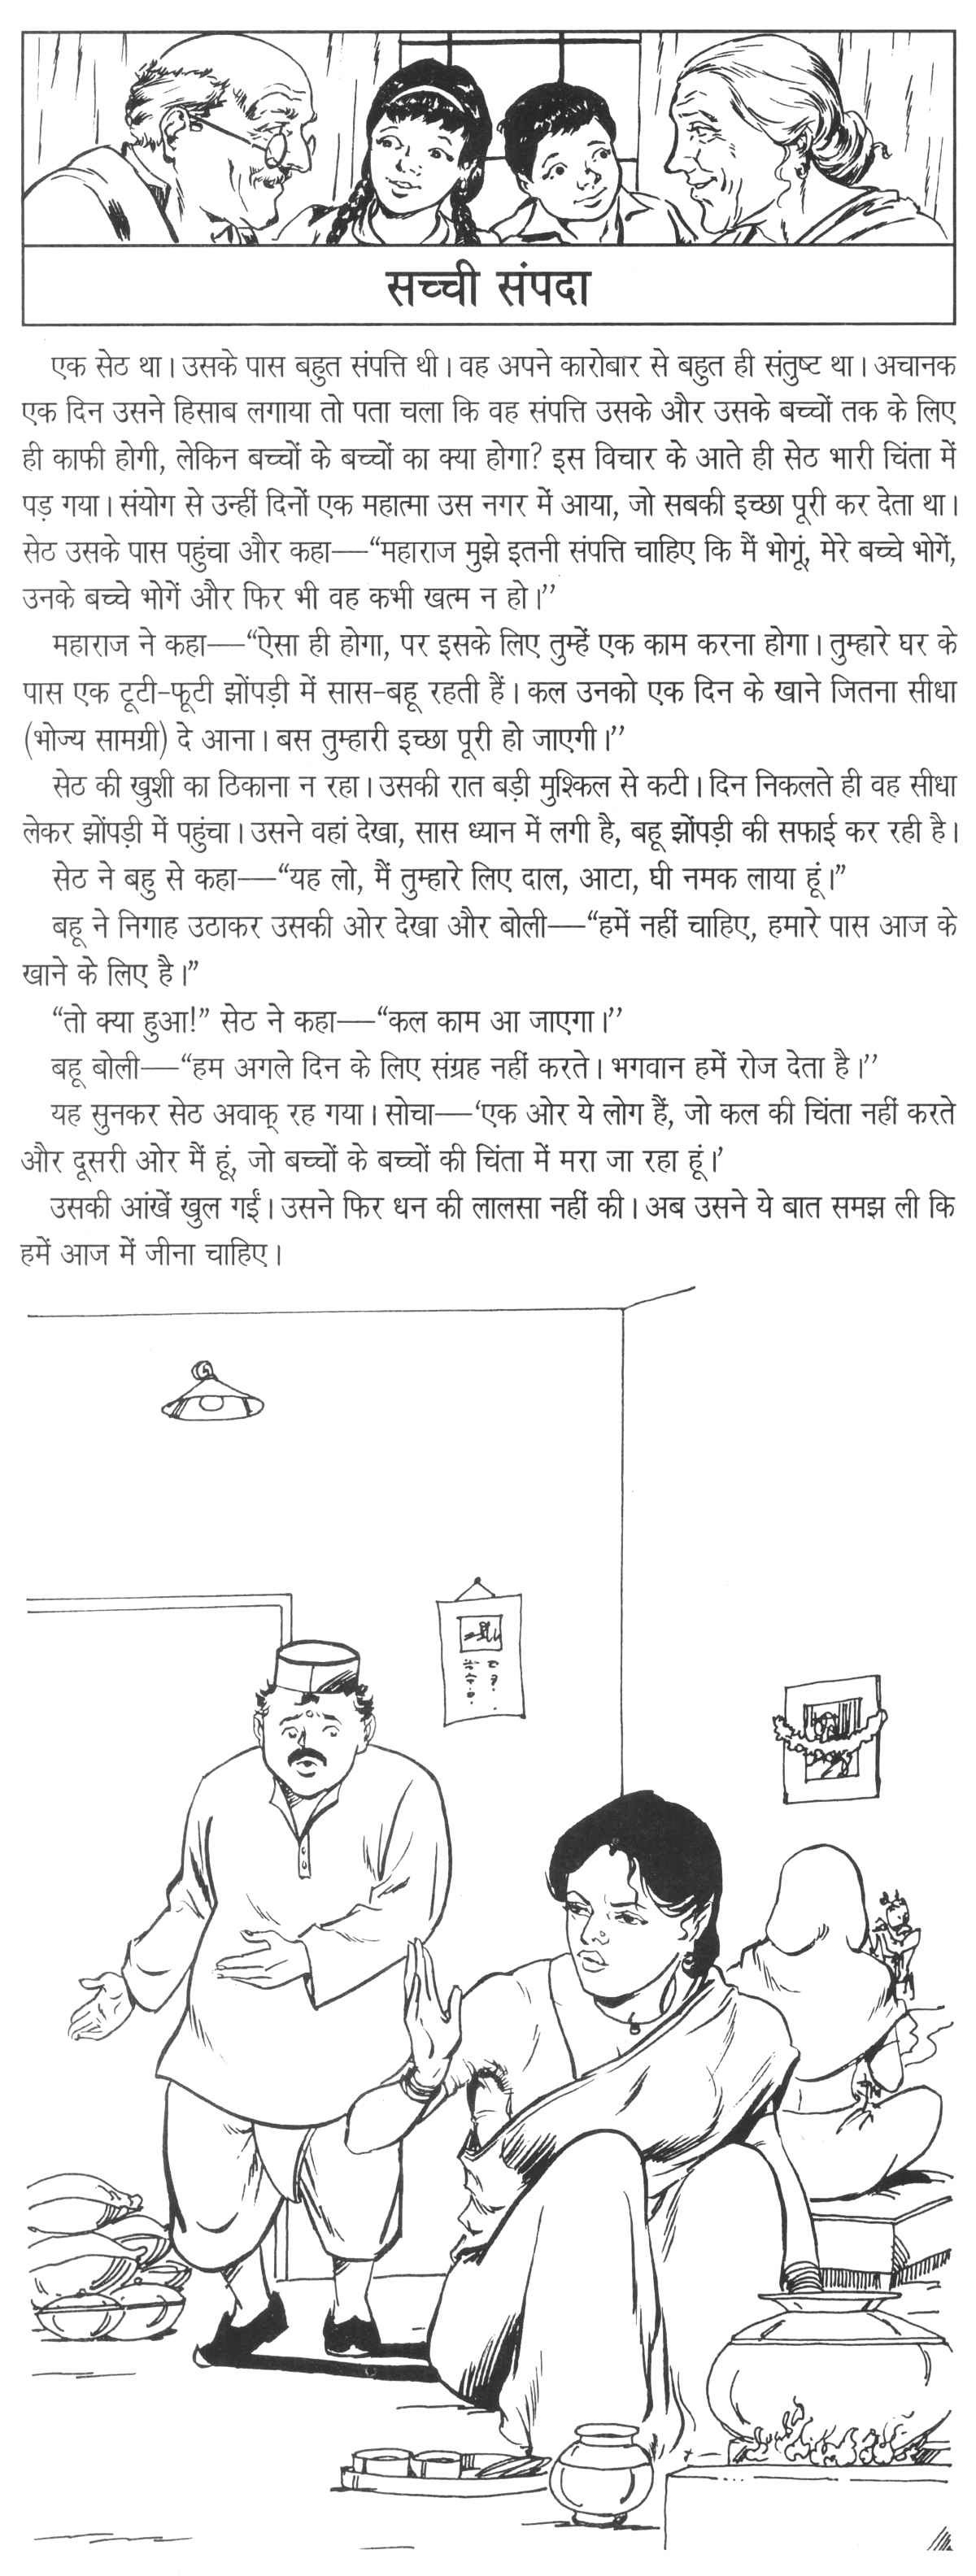 सच्ची संपदा
एक सेठ था। उसके पास बहुत संपत्ति थी। वह अपने कारोबार से बहुत ही संतुष्ट था। अचानक
एक दिन उसने हिसाब लगाया तो पता चला कि वह संपत्ति उसके और उसके बच्चों तक के लिए
ही काफी होगी, लेकिन बच्चों के बच्चों का क्या होगा? इस विचार के आते ही सेठ भारी चिंता में
पड़ गया। संयोग से उन्हीं दिनों एक महात्मा उस नगर में आया, जो सबकी इच्छा पूरी कर देता था।
सेठ उसके पास पहुंचा और कहा—“महाराज मुझे इतनी संपत्ति चाहिए कि मैं भोगूं, मेरे बच्चे भोगें,
उनके बच्चे भोगें और फिर भी वह कभी खत्म न हो।’’
महाराज ने कहा—“ऐसा ही होगा, पर इसके लिए तुम्हें एक काम करना होगा। तुम्हारे घर के
पास एक टूटी-फूटी झोंपड़ी में सास-बहू रहती हैं। कल उनको एक दिन के खाने जितना सीधा
(भोज्य सामग्री) दे आना। बस तुम्हारी इच्छा पूरी हो जाएगी।’’
सेठ की खुशी का ठिकाना न रहा। उसकी रात बड़ी मुश्किल से कटी। दिन निकलते ही वह सीधा
लेकर झोंपड़ी में पहुंचा। उसने वहां देखा, सास ध्यान में लगी है, बहू झोंपड़ी की सफाई कर रही है।
सेठ ने बहु से कहा—“यह लो, मैं तुम्हारे लिए दाल, आटा, घी नमक लाया हूं।”
बहू ने निगाह उठाकर उसकी ओर देखा और बोली—“हमें नहीं चाहिए, हमारे पास आज के
खाने के लिए है।”
“तो क्या हुआ!” सेठ ने कहा—“कल काम आ जाएगा।’’
बहू बोली—“हम अगले दिन के लिए संग्रह नहीं करते। भगवान हमें रोज देता है।’’
यह सुनकर सेठ अवाक् रह गया। सोचा—‘एक ओर ये लोग हैं, जो कल की चिंता नहीं करते
और दूसरी ओर मैं हूं, जो बच्चों के बच्चों की चिंता में मरा जा रहा हूं।’
उसकी आंखें खुल गईं। उसने फिर धन की लालसा नहीं की। अब उसने ये बात समझ ली कि
हमें आज में जीना चाहिए।